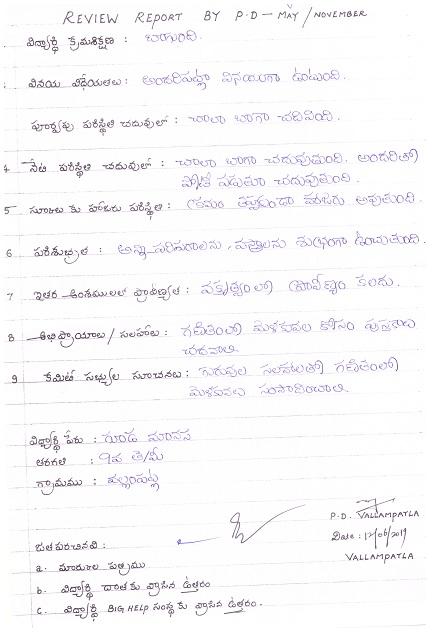 REVIEW REPORT BY P.D - MAY/NOVEMBER
విద్యార్థి క్రమశిక్షణ : బాగుంది.
వినయ విధేయతలు: అందరిపట్లా వినయంగా ఉంటుంది.
పూర్వపు పరిస్థితి చదువులో : చాలా బాగా చదివింది.
4 నేటి పరిస్థితి చదువులో : చాలా బాగా చదువుతుంది. అందరితో
పోటీ పడుతూ చదువుతుంది.
5 స్కూలు కు హాజరు పరిస్థితి: క్రమం తప్పకుండా హాజరు అవుతుంది.
6 పరిశుభ్రత : అన్ని పరిసరాలను, వస్త్రాలను శుభ్రంగా ఉంచుతుంది.
7 ఇతర అంశములలో ప్రావీణ్యత : వక్తృత్వంలో ప్రావీణ్యం కలదు.
8 అభిప్రాయాలు / సలహాలు: గణితంలో మెళకువల కోసం పుస్తకాలు
చదవాలి
9 కమిటీ సభ్యుల సూచనలు: గురువుల సలహాలతో గణితంలో
మెళకువలు సంపాదించాలి.
విద్యార్థి పేరు : గుండ మానస
తరగతి : 9వ తె/మీ
గ్రామము : వల్లంపట్ల
P.D. VALLAMPATLA
Date: 12/06/2019
VALLAMPATLA
జతపరచినవి :
a. మార్కుల పత్రము
b. విద్యార్థి దాతకు వ్రాసిన ఉత్తరం
c. విద్యార్థి BIG HELP సంస్థ కు వ్రాసిన ఉత్తరం.